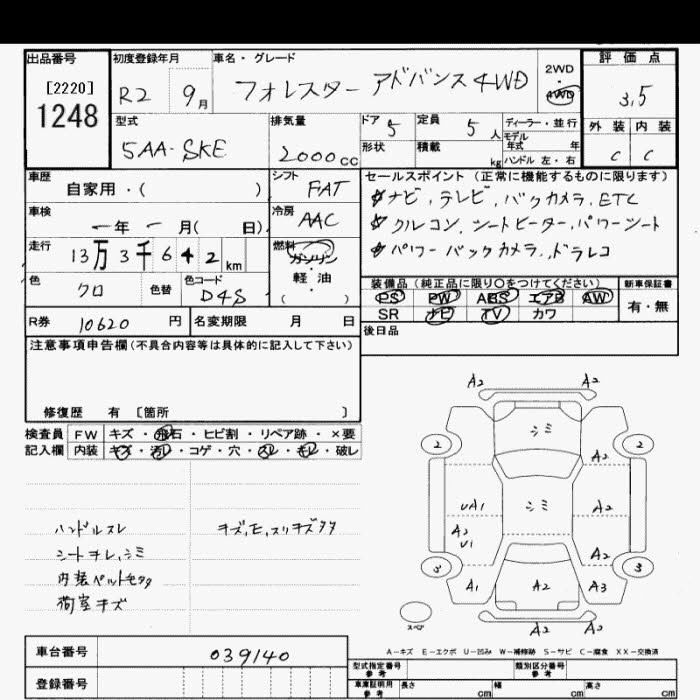 出品番号
[2220]
1248
初度登録年月
R2 9月
車名・グレード
フォレスター アドバンス 4WD
2WD
・
4WD
評価点
3.5
型式
5AA-SKE
排気量
2000cc
ドア
5
定員
5人
ディーラー・並行
モデル
年式 年
ハンドル 左・右
形状
積載
kg
外装
内装
C C
車歴
自家用・( )
シフト
FAT
セールスポイント (正常に機能するものに限ります)
ナビ, テレビ, バックカメラ, ETC
クルコン, シートヒーター, パワーシート
パワーバックカメラ, ドラレコ
車検
ー年ー月( 日)
冷房
AAC
走行
13万3千642km
燃料
ガソリン
・
軽油
( )
色
クロ
色替
色コード
D4S
装備品 (純正品に限り○をつけてください)
PS PW ABS エアB AW
SR ナビ TV カワ
新車保証書
有・無
R券
10620円
名変期限 月 日
後日品
注意事項申告欄(不具合内容等は具体的に記入して下さい)
修復歴 有 〔箇所 〕
検査員
記入欄
FW キズ・飛石・ヒビ割・リペア跡・×要
内装 キズ・汚レ・コゲ・穴・スレ・キレ・破レ
ハンドルスレ
シートチレ, シミ
内装ペット毛タタ
荷室キズ
キズ, E, スリキズタタ
A2 A2
シミ
2 2
A2
UA1 シミ A2
A2
U1
A2
3 3
A1 A2 A3
スペア
A2 A2
A−キズ E−エクボ U−凹み W−補修跡 S−サビ C−腐食 XX−交換済
車台番号
039140
登録番号
型式指定番号
参考
類別区分番号
参考
車庫証明用
参考
長さ cm
幅 cm
高さ cm